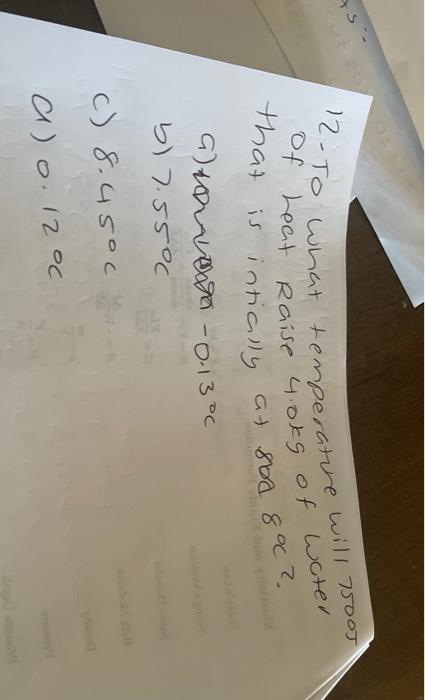 12-To what temperature will 7500J
of heat Raise 4.0kg of water
that is intially at 8°C?
a) -0.13°C
b) 7.55°C
c) 8.45°C
d) 0.12°C